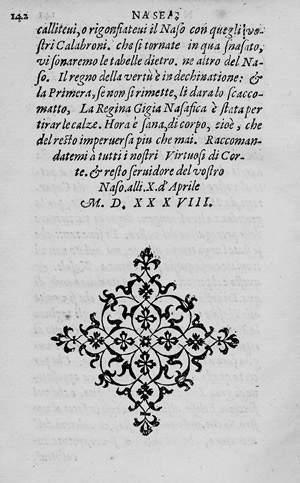 142 NASEA;
calliteui, o rigonfiateui il Naso con quegli vo-
stri Calabroni. che si tornate in qua snasato,
vi sonaremo le tabelle dietro. ne altro del Na-
so. Il regno della vertù è in dechinatione: &
la Primera, se non si rimette, li darà lo scacco-
matto, La Regina Gigia Nasafica è stata per
tirar le calze. Hora è sana, di corpo, cioè, che
del resto imperuersa piu che mai. Raccoman-
datemi à tutti i nostri Virtuosi di Cor-
te. & resto seruidore del vostro
Naso. alli. X. d'Aprile
M. D. XXXVIII.